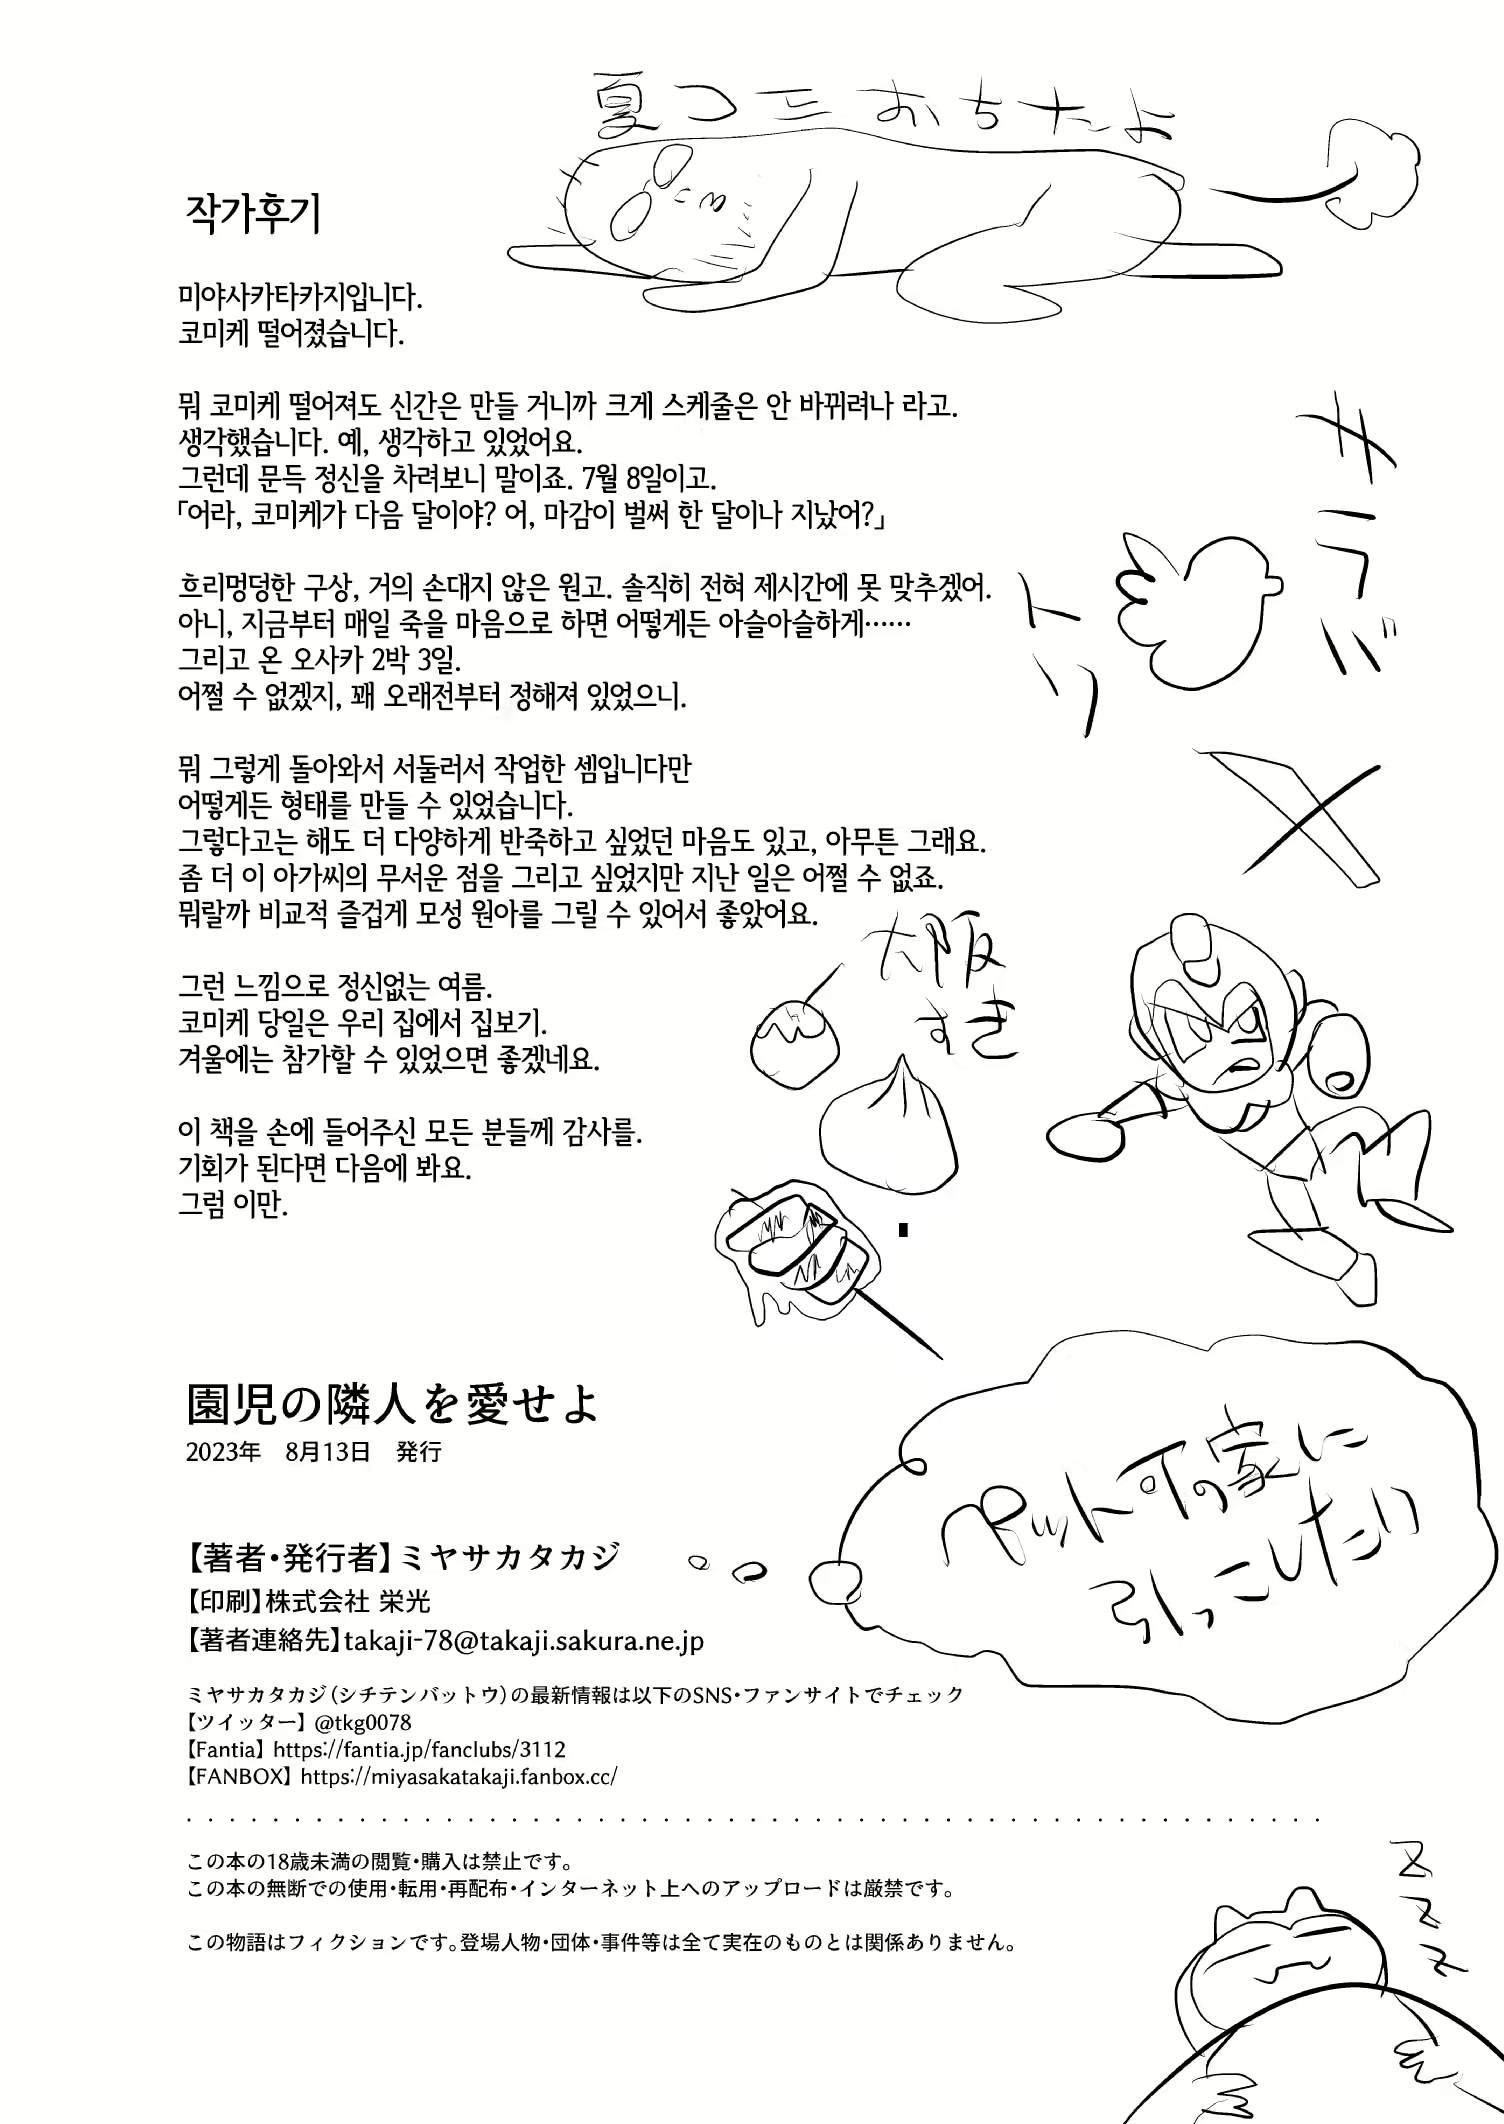 夏コミおちたよ
작가후기
미야사카타카지입니다.
코미케 떨어졌습니다.
뭐 코미케 떨어져도 신간은 만들 거니까 크게 스케줄은 안 바뀌려나 라고.
생각했습니다. 예, 생각하고 있었어요.
그런데 문득 정신을 차려보니 말이죠. 7월 8일이고.
「어라, 코미케가 다음 달이야? 어, 마감이 벌써 한 달이나 지났어?」
흐리멍덩한 구상, 거의 손대지 않은 원고. 솔직히 전혀 제시간에 못 맞추겠어.
아니, 지금부터 매일 죽을 마음으로 하면 어떻게든 아슬아슬하게……
그리고 온 오사카 2박 3일.
어쩔 수 없겠지, 꽤 오래전부터 정해져 있었으니.
뭐 그렇게 돌아와서 서둘러서 작업한 셈입니다만
어떻게든 형태를 만들 수 있었습니다.
그렇다고는 해도 더 다양하게 반죽하고 싶었던 마음도 있고, 아무튼 그래요.
좀 더 이 아가씨의 무서운 점을 그리고 싶었지만 지난 일은 어쩔 수 없죠.
뭐랄까 비교적 즐겁게 모성 원아를 그릴 수 있어서 좋았어요.
그런 느낌으로 정신없는 여름.
코미케 당일은 우리 집에서 집보기.
겨울에는 참가할 수 있었으면 좋겠네요.
이 책을 손에 들어주신 모든 분들께 감사를.
기회가 된다면 다음에 봐요.
그럼 이만.
サラバ
トリ
大阪
すき
ペット可の家に
引っこしたい
園児の隣人を愛せよ
2023年 8月13日 発行
【著者・発行者】ミヤサカタカジ
【印刷】株式会社 栄光
【著者連絡先】takaji-78@takaji.sakura.ne.jp
ミヤサカタカジ（シチテンバットウ）の最新情報は以下のSNS・ファンサイトでチェック
【ツイッター】 @tkg0078
【Fantia】 https://fantia.jp/fanclubs/3112
【FANBOX】 https://miyasakatakaji.fanbox.cc/
この本の18歳未満の閲覧・購入は禁止です。
この本の無断での使用・転用・再配布・インターネット上へのアップロードは厳禁です。
この物語はフィクションです。登場人物・団体・事件等は全て実在のものとは関係ありません。
Z
Z
Z